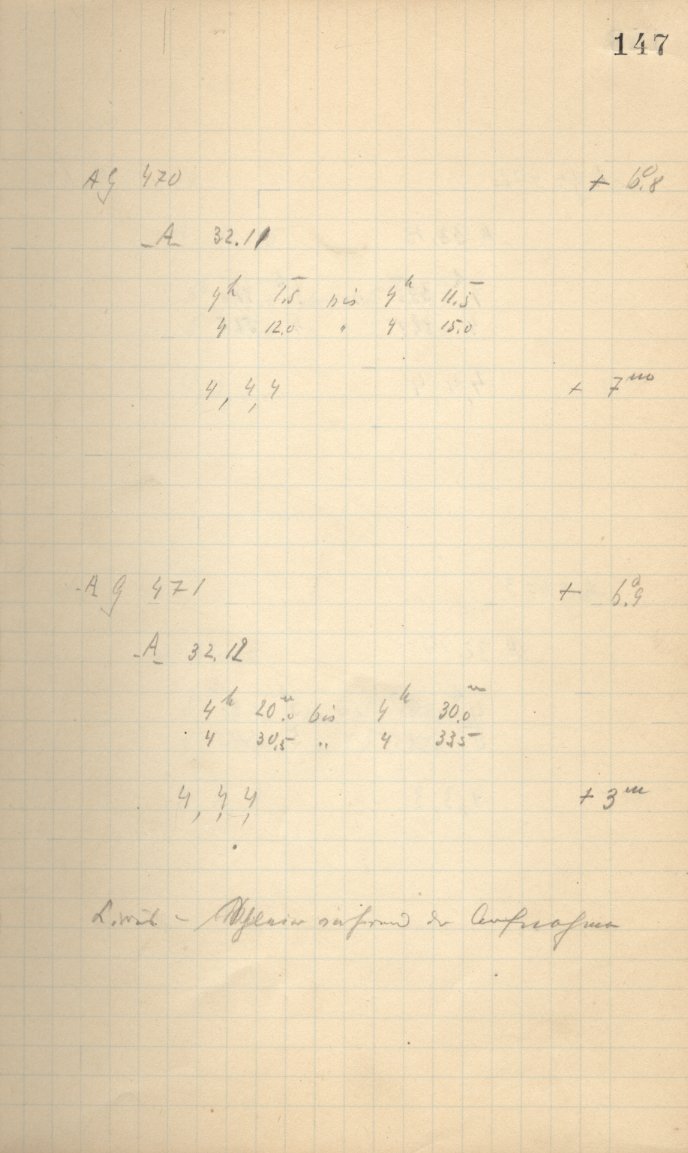 147
AG 470 + 6.8
A 32.11
4h 1.5 bis 4h 11.5
4 12.0 " 4 15.0
4, 4, 4 + 7m
AG 471 + 6.9
A 32.12
4h 20m.0 bis 4h 30.0m
4 30.5 " 4 33.5
4, 4, 4 + 3m
während der Aufnahme